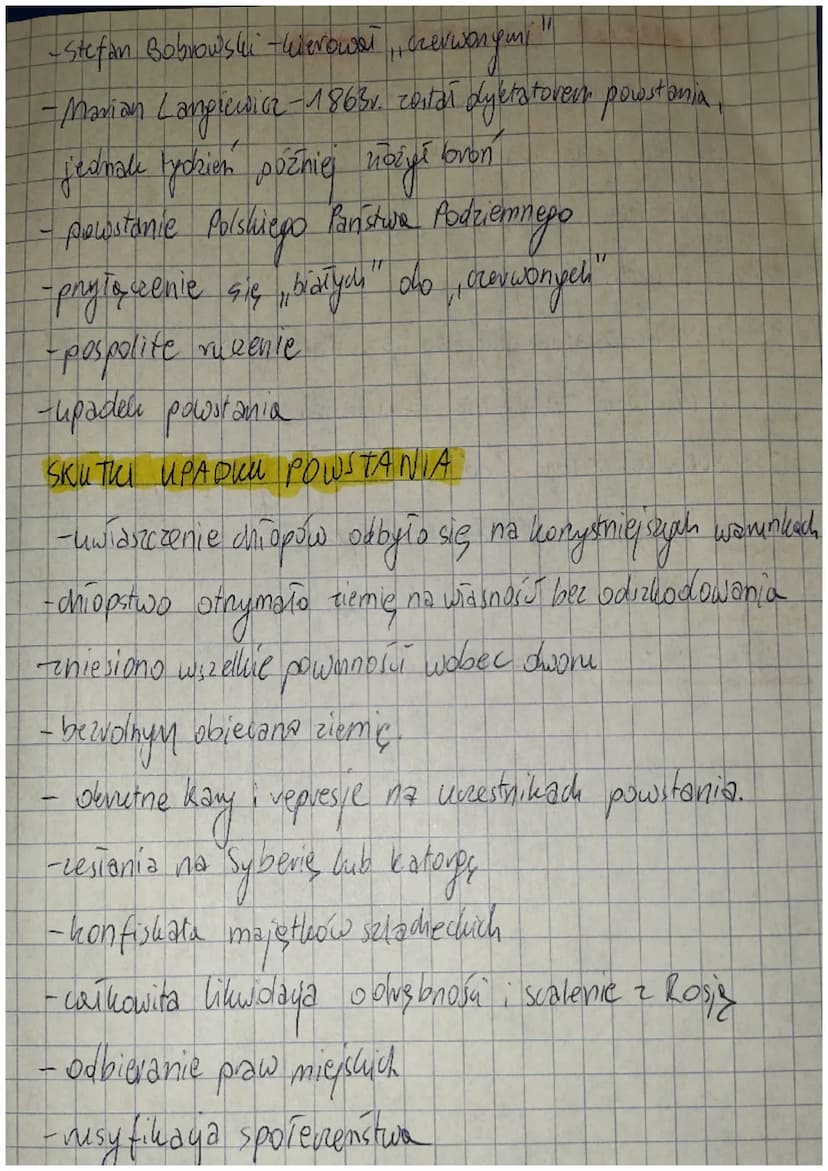 -Stefan Bobrowski - kierował „czerwonymi"
- Marian Langiewicz - 1863r. został dyktatorem powstania,
jednak tydzień później złożył broń
- powstanie Polskiego Państwa Podziemnego
-przyłączenie się „białych" do „czerwonych"
-pospolite ruszenie
-upadek powstania
SKUTKI UPADKU POWSTANIA
-uwłaszczenie chłopów odbyło się na korzystniejszych warunkach
-chłopstwo otrzymało ziemię na własność bez odszkodowania
-zniesiono wszelkie powinności wobec dworu
-bezrolnym obiecano ziemię.
- okrutne kary i represje na uczestnikach powstania.
-zesłania na Syberię lub katorgę
-konfiskata majątków szlacheckich
-całkowita likwidacja odrębności i scalenie z Rosją
- odbieranie praw miejskich
-rusyfikacja społeczeństwa